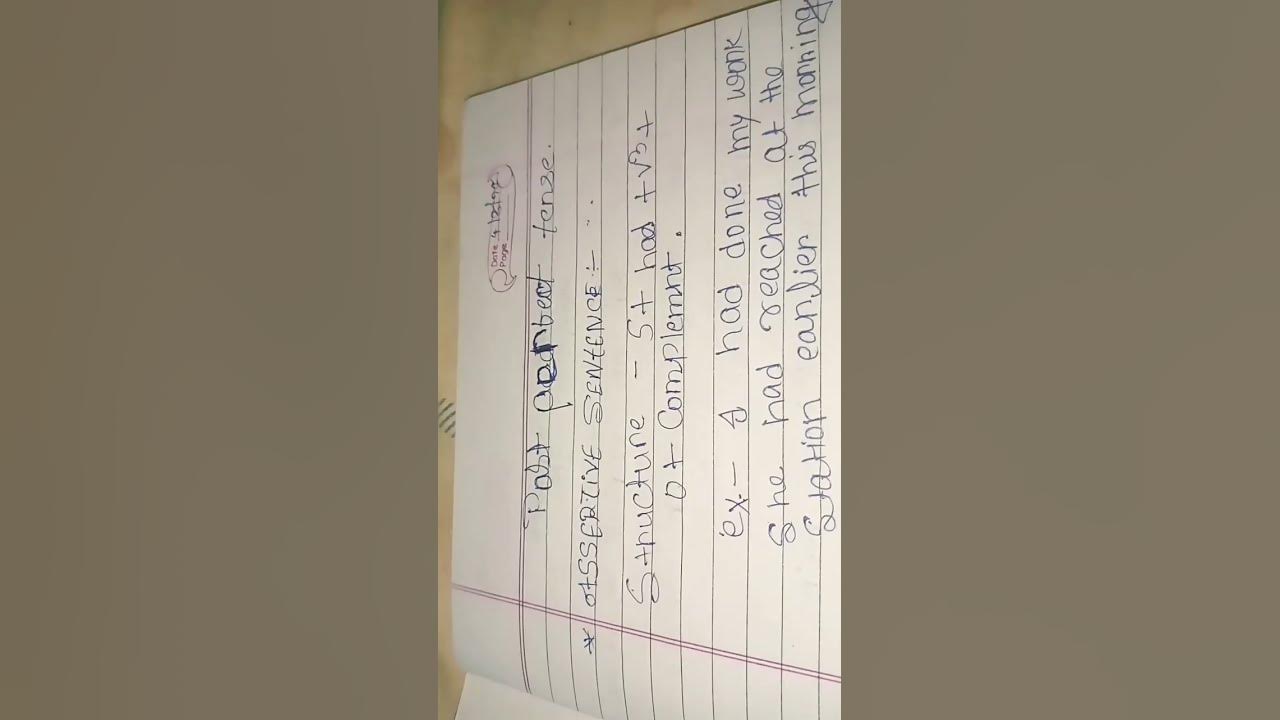 Date
Page
Past perfect tense.
* ASSERTIVE SENTENCE :-
Structure - S + had + V3 +
O + Complemnt.
ex.- I had done my work
She had reached at the
Station earlier this morning